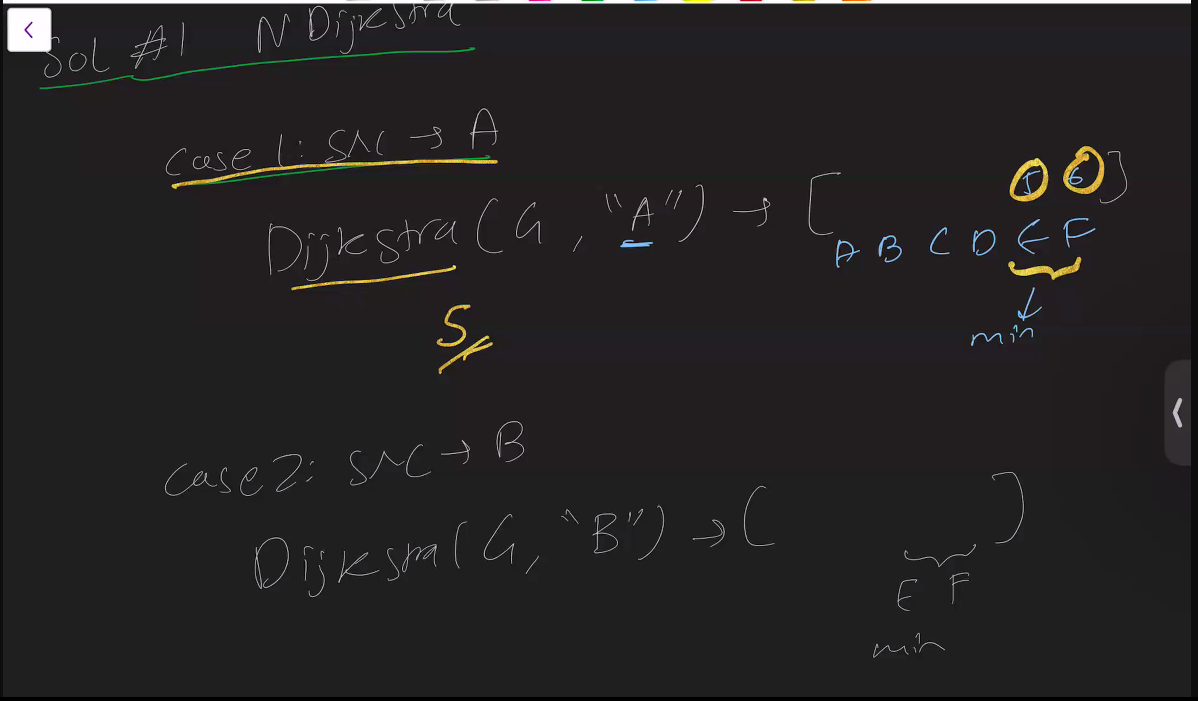 Sol #1 N Dijkstra
Case 1: src → A
5 6
Dijkstra(G, "A") → [ ]
A B C D E F
5
min
Case 2: src → B
Dijkstra(G, "B") → [ ]
E F
min